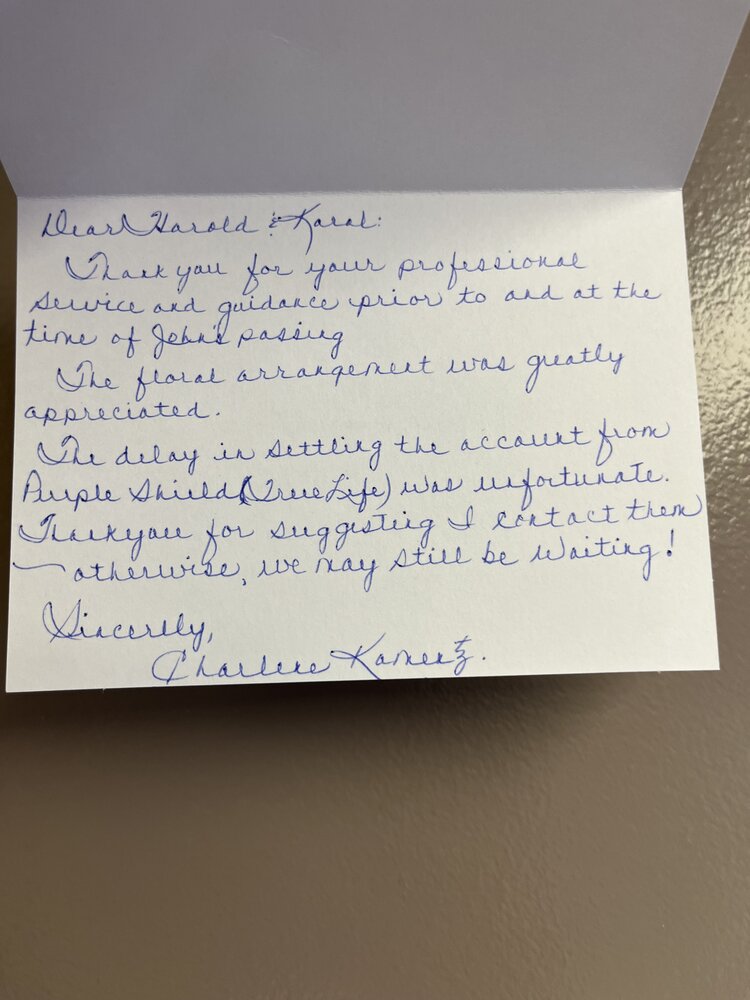 Dear Harold & Karal:
Thank you for your professional
service and guidance prior to and at the
time of John's passing
The floral arrangement was greatly
appreciated.
The delay in settling the account from
Purple Shield (True Life) was unfortunate.
Thankyou for suggesting I contact them
— otherwise, we may still be waiting!
Sincerely,
Charlene Kamentz.